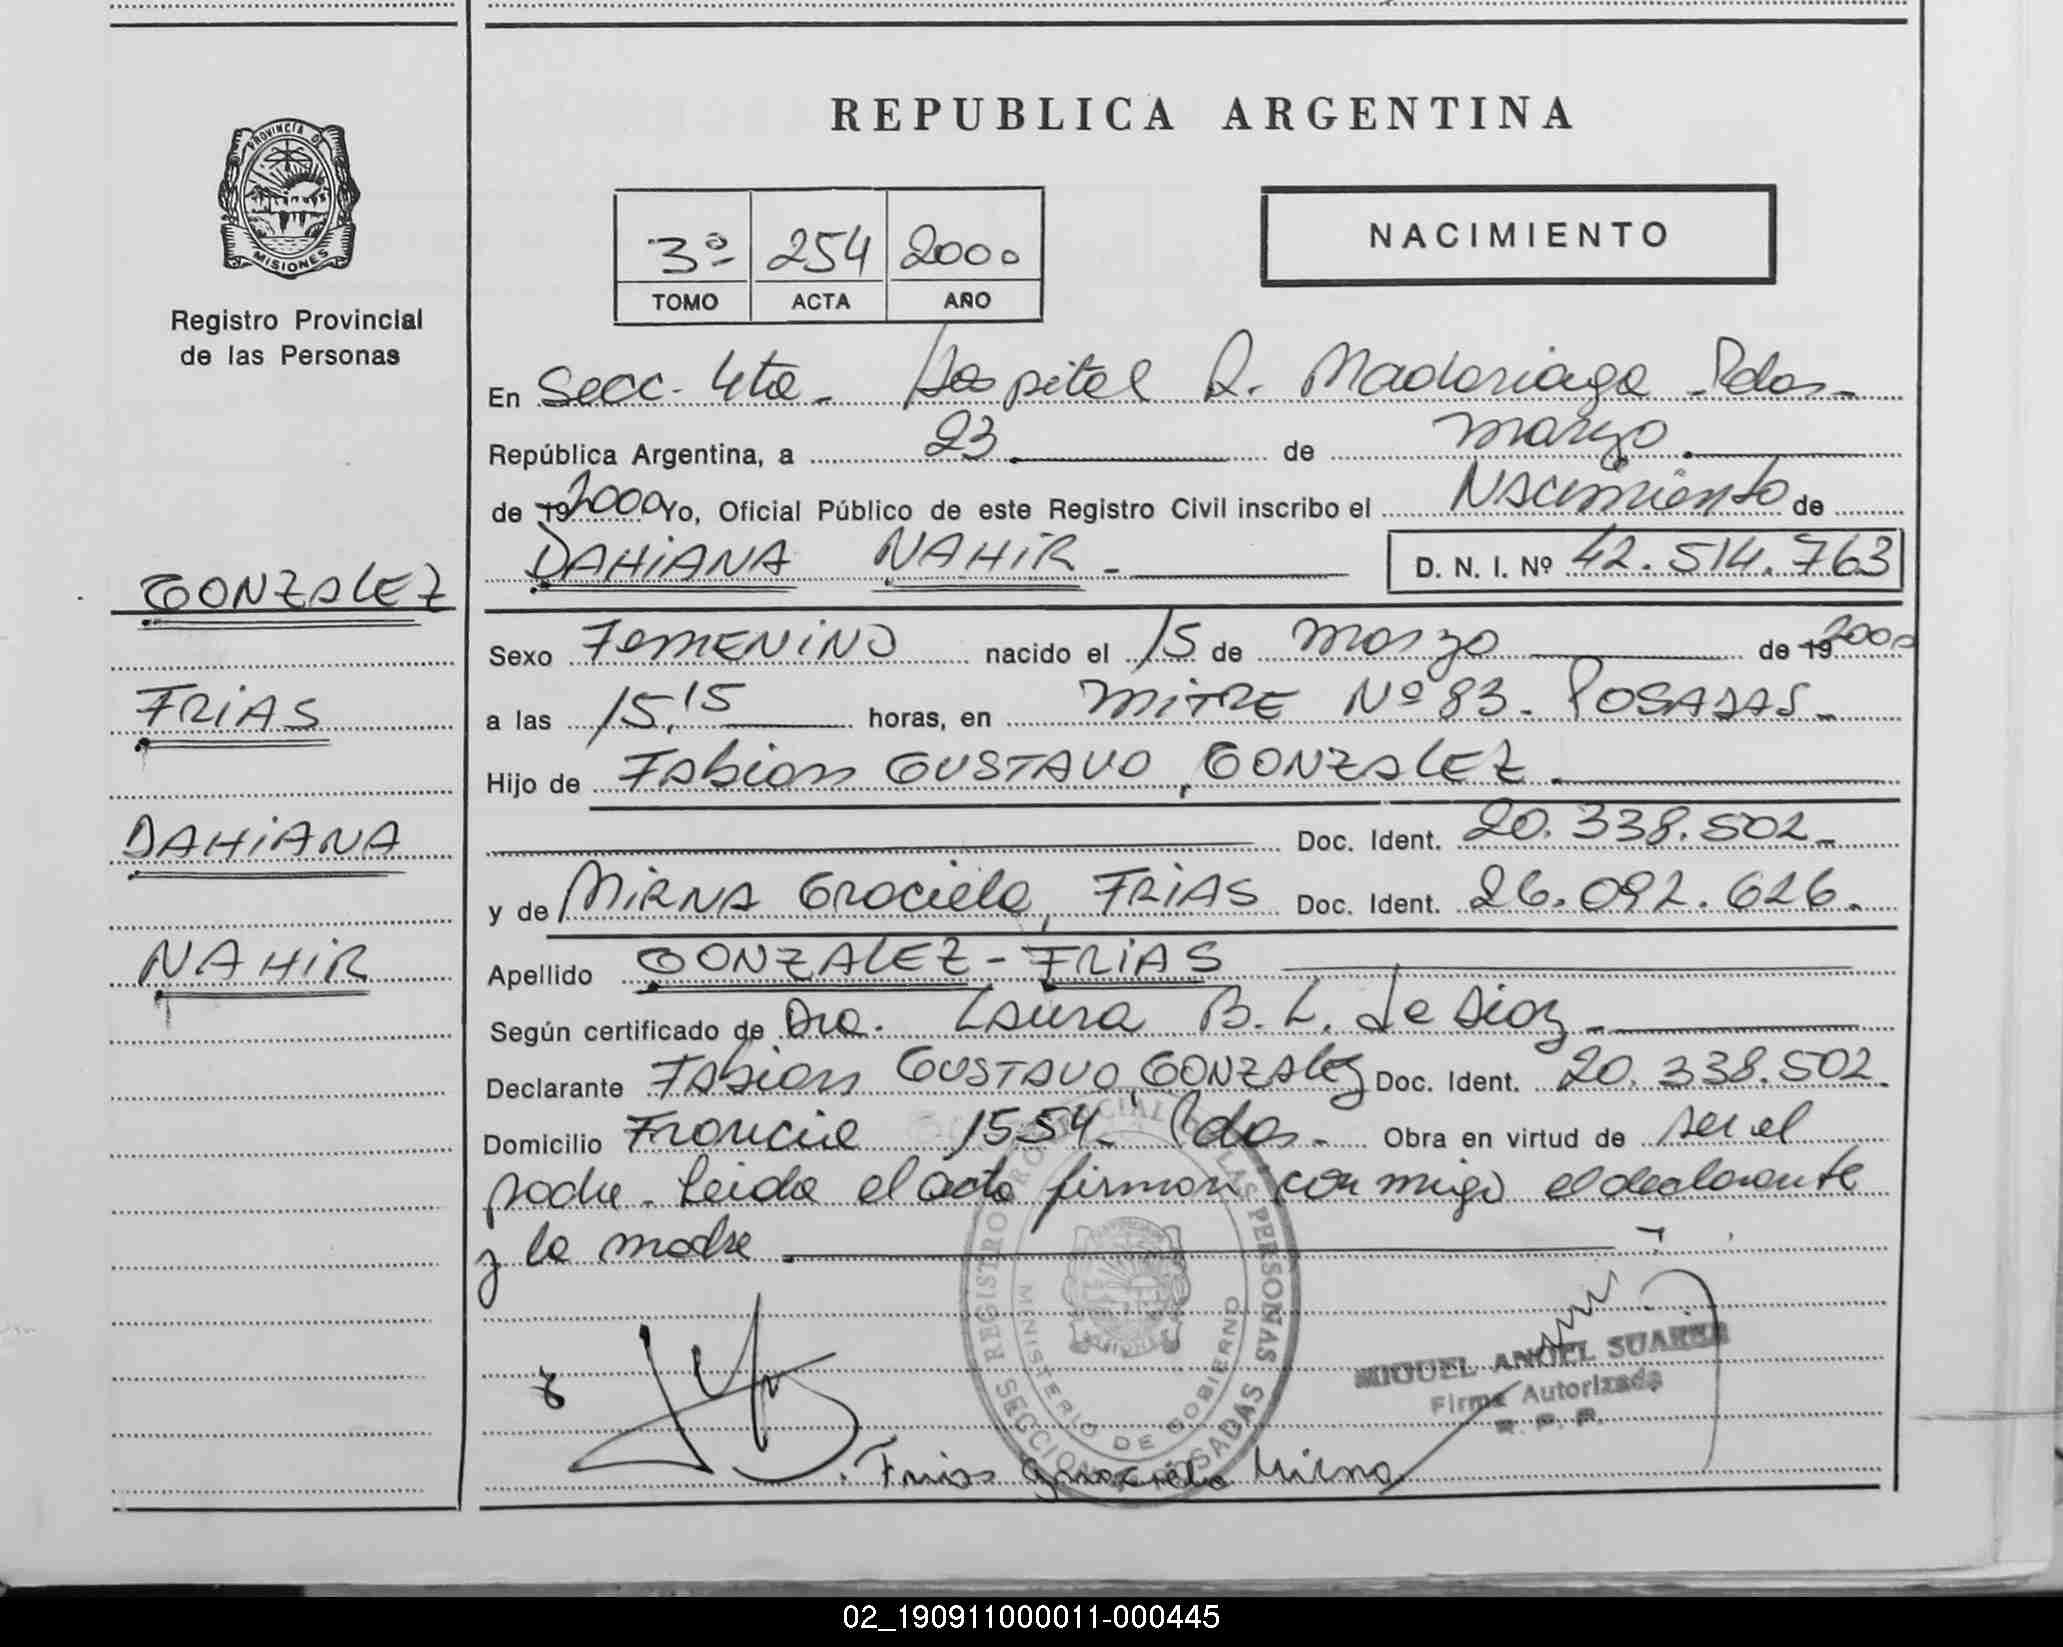 REPUBLICA ARGENTINA
PROVINCIA DE
MISIONES
Registro Provincial
de las Personas
3º 254 2000
TOMO ACTA AÑO
NACIMIENTO
En Secc. 4ta. Hospital R. Madariaga Pdas.
República Argentina, a 23 de marzo
de 19 2000 Yo, Oficial Público de este Registro Civil inscribo el Nacimiento de
DAHIANA NAHIR D. N. I. Nº 42.514.763
GONZALEZ
FRIAS
DAHIANA
NAHIR
Sexo FEMENINO nacido el 15 de marzo de 19 2000
a las 15,15 horas, en MITRE Nº 83. POSADAS.
Hijo de Fabian GUSTAVO, GONZALEZ.
Doc. Ident. 20.338.502
y de MIRNA Graciela, FRIAS Doc. Ident. 26.092.626.
Apellido GONZALEZ - FRIAS
Según certificado de Dra. Laura B. L. de Diaz
Declarante Fabian GUSTAVO GONZALEZ Doc. Ident. 20.338.502
Domicilio Francia 1554. Pdas. Obra en virtud de ser el
padre. Leida el acta firman conmigo el declarante
y la madre
REGISTRO PROVINCIAL DE LAS PERSONAS
MINISTERIO DE GOBIERNO
SECCION POSADAS
MIGUEL ANGEL SUAREZ
Firma Autorizada
R. P. P.
Frias Graciela Mirna
02_190911000011-000445